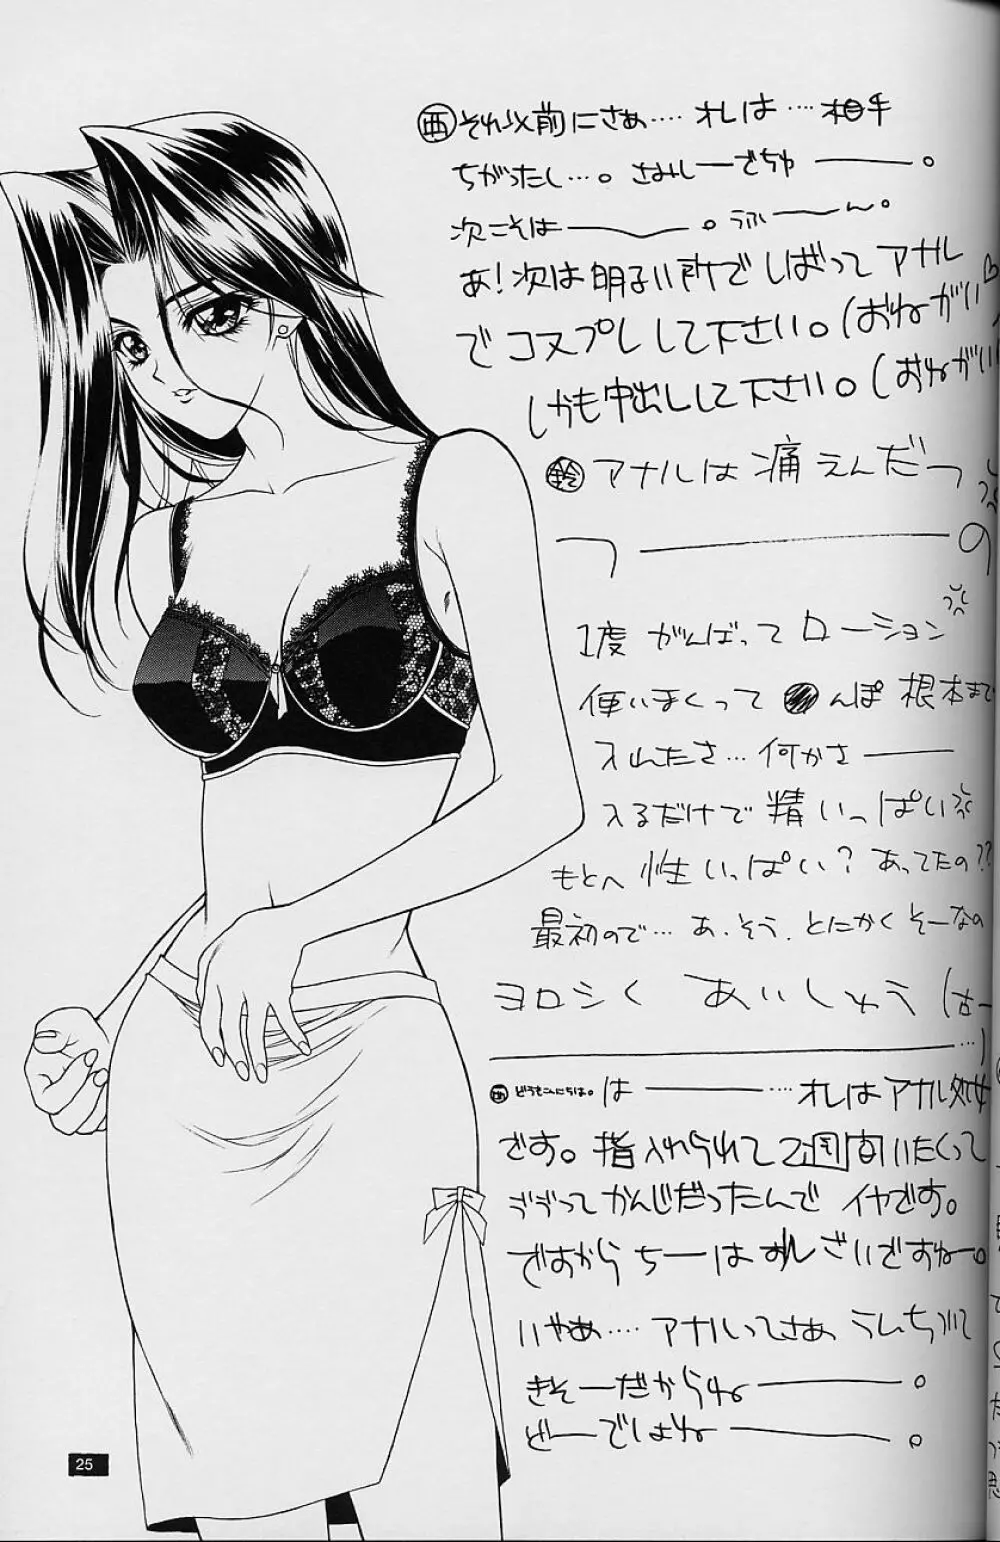 西 それ以前にさぁ‥‥ オレは‥‥ 相手
ちがったし…。 さみしーでちゅ ――。
次こそは――。 うふ――ん。
あ!次は明るい所でしばってアナル
でコスプレして下さい。(おねがい♡
しかも中出しして下さい。(おねがい
鈴 アナルは痛えんだっ
つ ―――― の
1度 がんばって ローション
使いまくって ●んぽ 根本まで
入れたさ… 何かさ ――
入るだけで 精いっぱい
もとへ 性いっぱい? あってたの??
最初ので… あ、そう、とにかくそーなの
ヨロシく あいしゅう
西 どうもこんにちは。 は ――‥‥ オレはアナル処女
です。指入れられて2週間いたくって
ヴヴってかんじだったんで イヤです。
ですから ちーは ずれ ざいですねー。
いやぁ‥‥ アナルってさぁ うんち
きそーだからね ――。
どーでしょね ――。
25